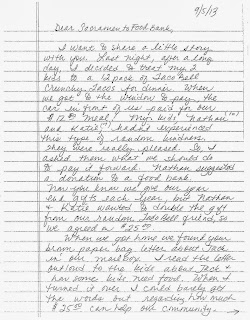 9/5/13
Dear Sacramento Food Bank,
I want to share a little story
with you. Last night, after a long
day, I decided to treat my 2
kids to a 12 pack of Taco Bell
Crunchy Tacos for dinner. When
we got to the window to pay, the
car in front of us paid for our
$12.00 meal! My kids Nathan
and Katie hadn't experienced
this type of random kindness.
They were really pleased. So, I
asked them what we should do
to pay it forward. Nathan suggested
a donation to a food bank.
Now you know we got our year
end acts each year, but Nathan
& Katie wanted to double the gift
from our random Taco Bell friend, so
we agreed on $25.00
When we got home we found your
brown paper bag letter about Jack
in our mailbox. I read the letter
outloud to the kids about Jack &
how some kids need food. When I
turned it over I could barely get
the words out regarding how much
$25.00 can help our community.